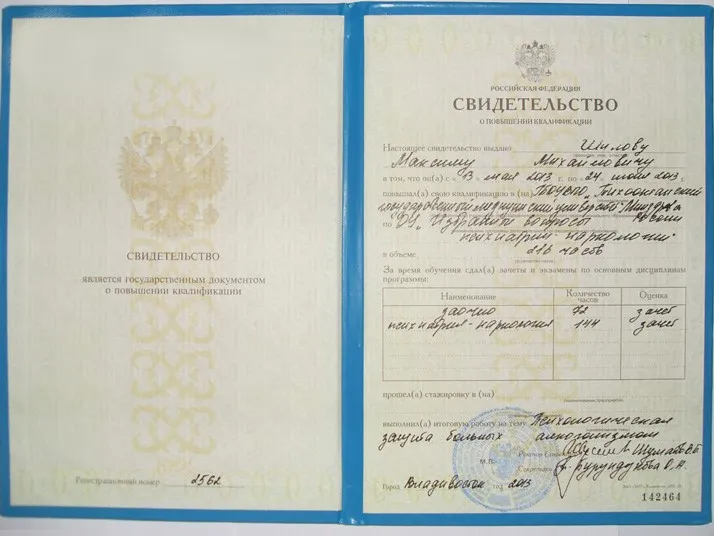 СВИДЕТЕЛЬСТВО
является государственным документом
о повышении квалификации
Регистрационный номер 2562
РОССИЙСКАЯ ФЕДЕРАЦИЯ
СВИДЕТЕЛЬСТВО
О ПОВЫШЕНИИ КВАЛИФИКАЦИИ
Настоящее свидетельство выдано Шилову
Максиму Михайловичу
в том, что он(а) с « 13 мая 2013 г. по « 24 2013 г.
повышал(а) свою квалификацию в (на) Тихоокеанский
государственный медицинский университет
по вопросы
психиатрии-наркологии"
в объеме 216 часов
За время обучения сдал(а) зачеты и экзамены по основным дисциплинам
программы:
Наименование Количество часов Оценка
заочно 72 зачет
психиатрия-наркология 144 зачет
прошел(а) стажировку в (на)
выполнил(а) итоговую работу на тему Психологическая
защита больных алкоголизмом
М.П.
Секретарь
Город Владивосток год 2013
142464